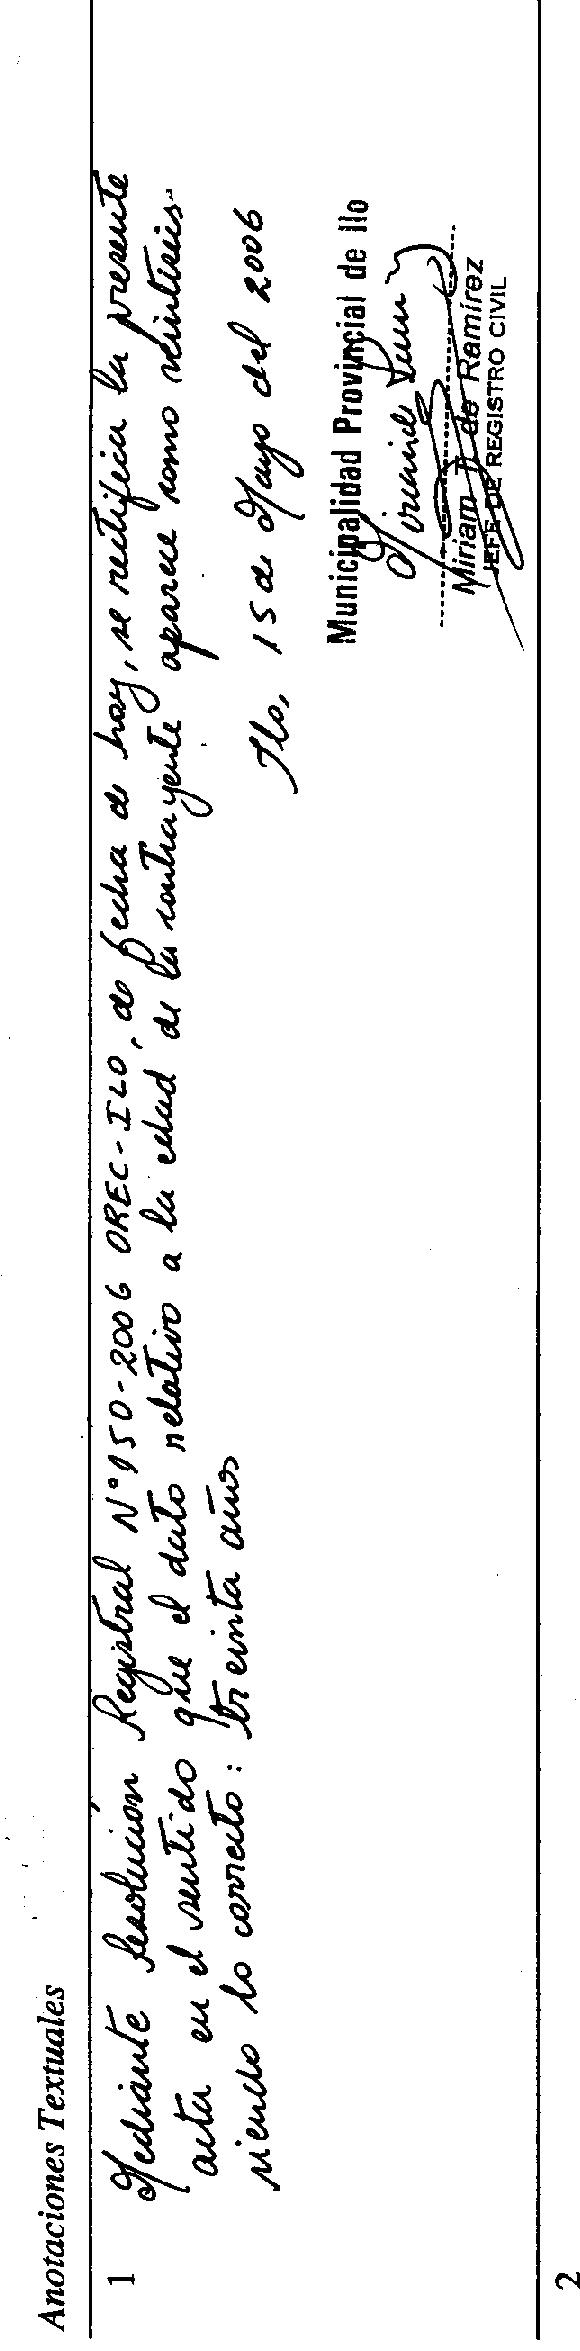 Anotaciones Textuales
1
Mediante Resolución Registral N° 150-2006 OREC-ILO, de fecha de hoy, se rectifica la presente
acta en el sentido que el dato relativo a la edad de la contrayente aparece como veintiseis
siendo lo correcto: treinta años
Ilo, 15 de Mayo del 2006
Municipalidad Provincial de Ilo
Miriam de Ramírez
JEFE DE REGISTRO CIVIL
2